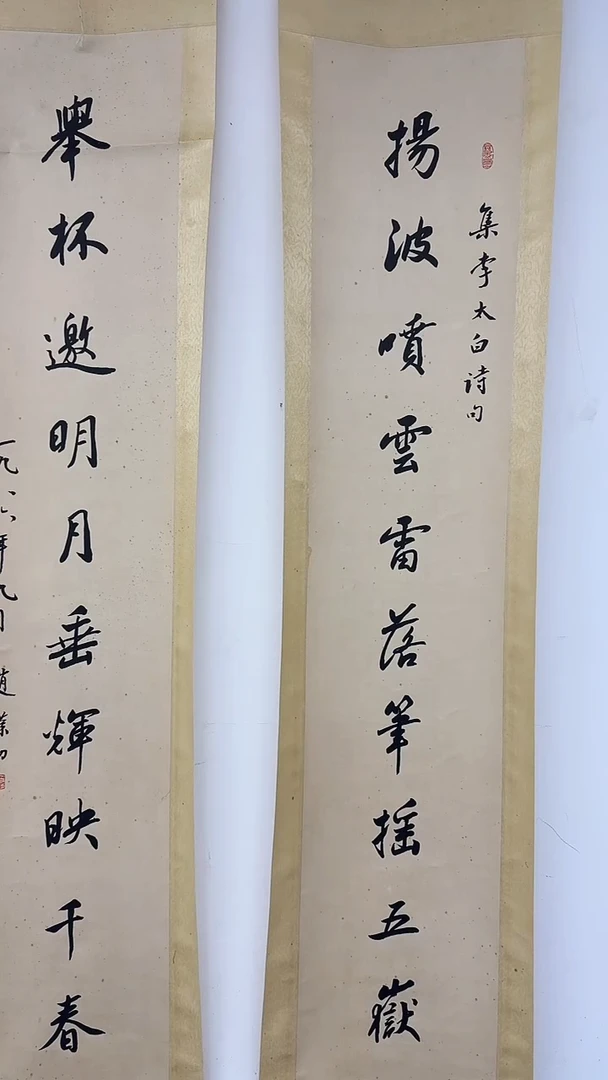 集李太白诗句
揚波噴雲雷落筆摇五嶽
舉杯邀明月垂輝映千春
一九八六年九月 趙樸初